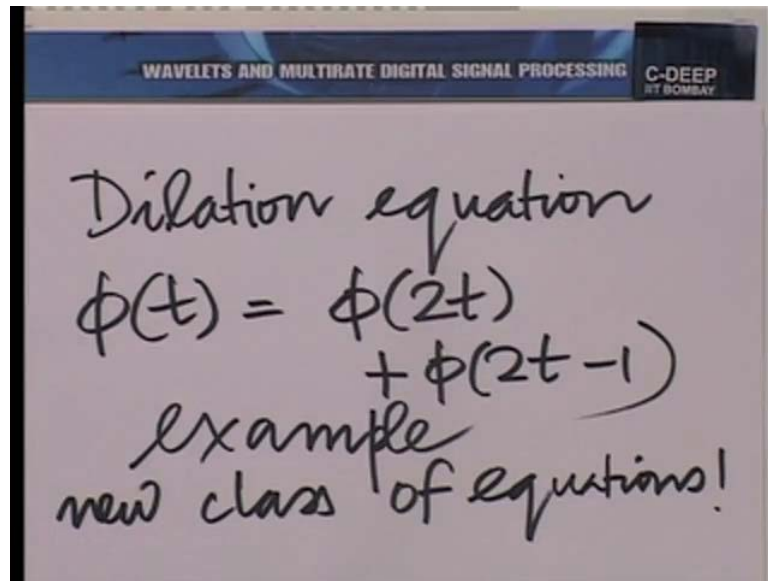 WAVELETS AND MULTIRATE DIGITAL SIGNAL PROCESSING
C-DEEP
IIT BOMBAY
Dilation equation
ϕ(t) = ϕ(2t)
+ ϕ(2t-1)
example
new class of equations!